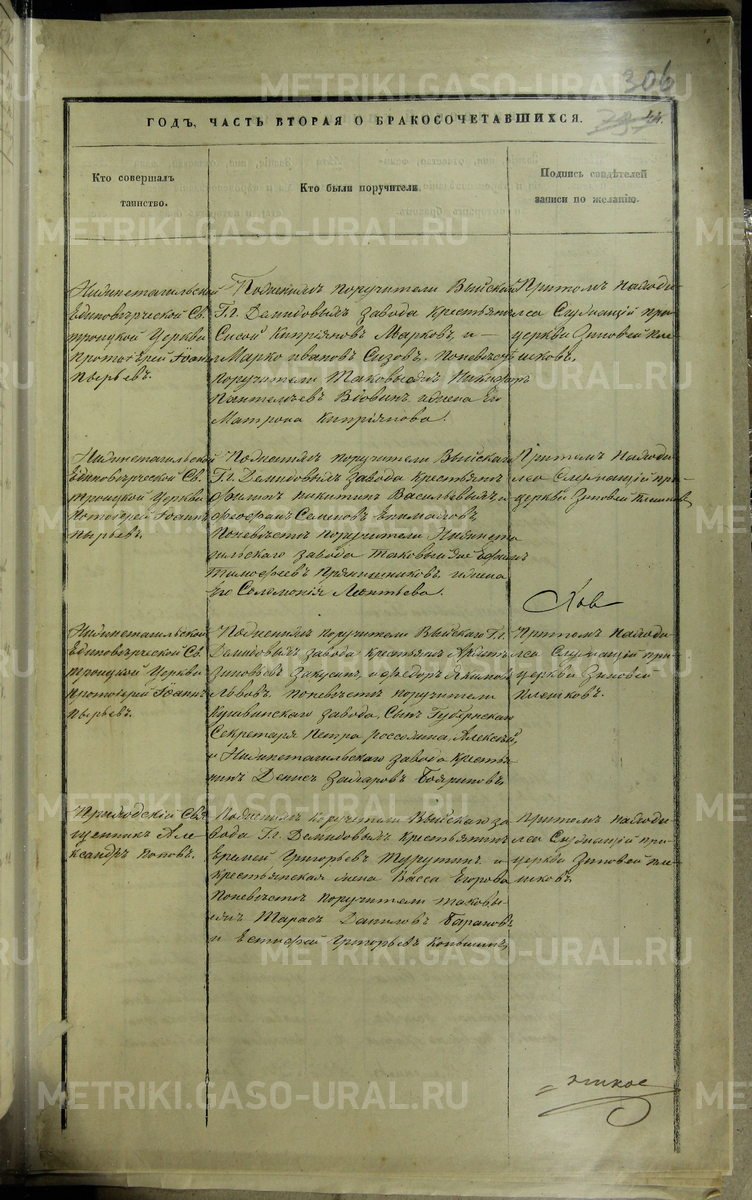 306
ГОДЪ, ЧАСТЬ ВТОРАЯ О БРАКОСОЧЕТАВШИХСЯ.
Кто совершалъ
таинство.
Кто были поручители.
Подпись свидѣтелей
записи по желанію.
Нижнетагильской
Единовѣрческой Св.
троицкой Церкви
Протоіерей Іоаннъ
Пырьевъ.
По женихѣ поручители Выйскаго
Гг. Демидовыхъ завода крестьяне
Сисой Кипріяновъ Марковъ, и
Марко ивановъ Сизовъ. По невѣстѣ
поручители таковыеже Никифоръ
Пантелѣевъ Вдовинъ и жена Его
Матрона Кипріянова.
Притомъ находи
лся Служащій при
церкви Зиновей Пле
шковъ.
Нижнетагильской
Единовѣрческой Св.
троицкой Церкви
Протоіерей Іоаннъ
Пырьевъ.
По женихѣ поручители Выйскаго
Гг. Демидовыхъ завода крестьяне
Филипъ никитинъ Васильевыхъ и
феофанъ Семеновъ
По невѣстѣ поручители Нижнета
гильскаго завода таковыя же Ефимъ
Тимофеевъ Прянишниковъ и жена
Его Соломонія Леонтьева.
Притомъ находи
лся Служащій при
церкви Зиновей Плешков
Нижнетагильской
Единовѣрческой Св.
троицкой Церкви
протоіерей Іоаннъ
Пырьевъ.
По женихѣ поручители Выйскаго Гг.
Демидовыхъ завода крестьяне
Зиновьевъ и федоръ Якимовъ
Львовъ. По невѣстѣ поручители
Кушвинскаго завода, Сынъ Губернскаго
Секретаря Петра россомахина, Алексѣй,
и Нижнетагильскаго завода крестья
нинъ Денисъ Захаровъ Бояриновъ.
Притомъ находи
лся Служащій при
церкви Зиновей
Плешковъ.
Приходскій Свя
щенникъ Але
ксандръ Поповъ.
По женихѣ поручители Выйскаго за
вода Гг. Демидовыхъ крестьянинъ
Еремей Григорьевъ Турутинъ и
крестьянская жена Васса Егорова
По невѣстѣ поручители таковы
яже Тарасъ Даниловъ Барановъ
и Естифей Григорьевъ
Притомъ находи
лся Служащій при
церкви Зиновей Пле
шковъ.
METRIKI.GASO-URAL.RU